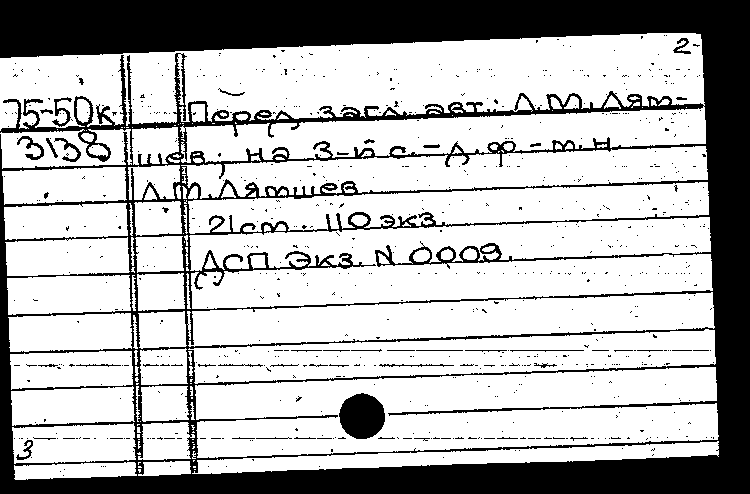 2-
75-50к Перед загл. авт.: Л.М. Лям-
3138 шев; на 3-й с. - д. ф.-м. н.
Л.М. Лямшев
21см. 110 экз.
ДСП. Экз. N 0009.
3